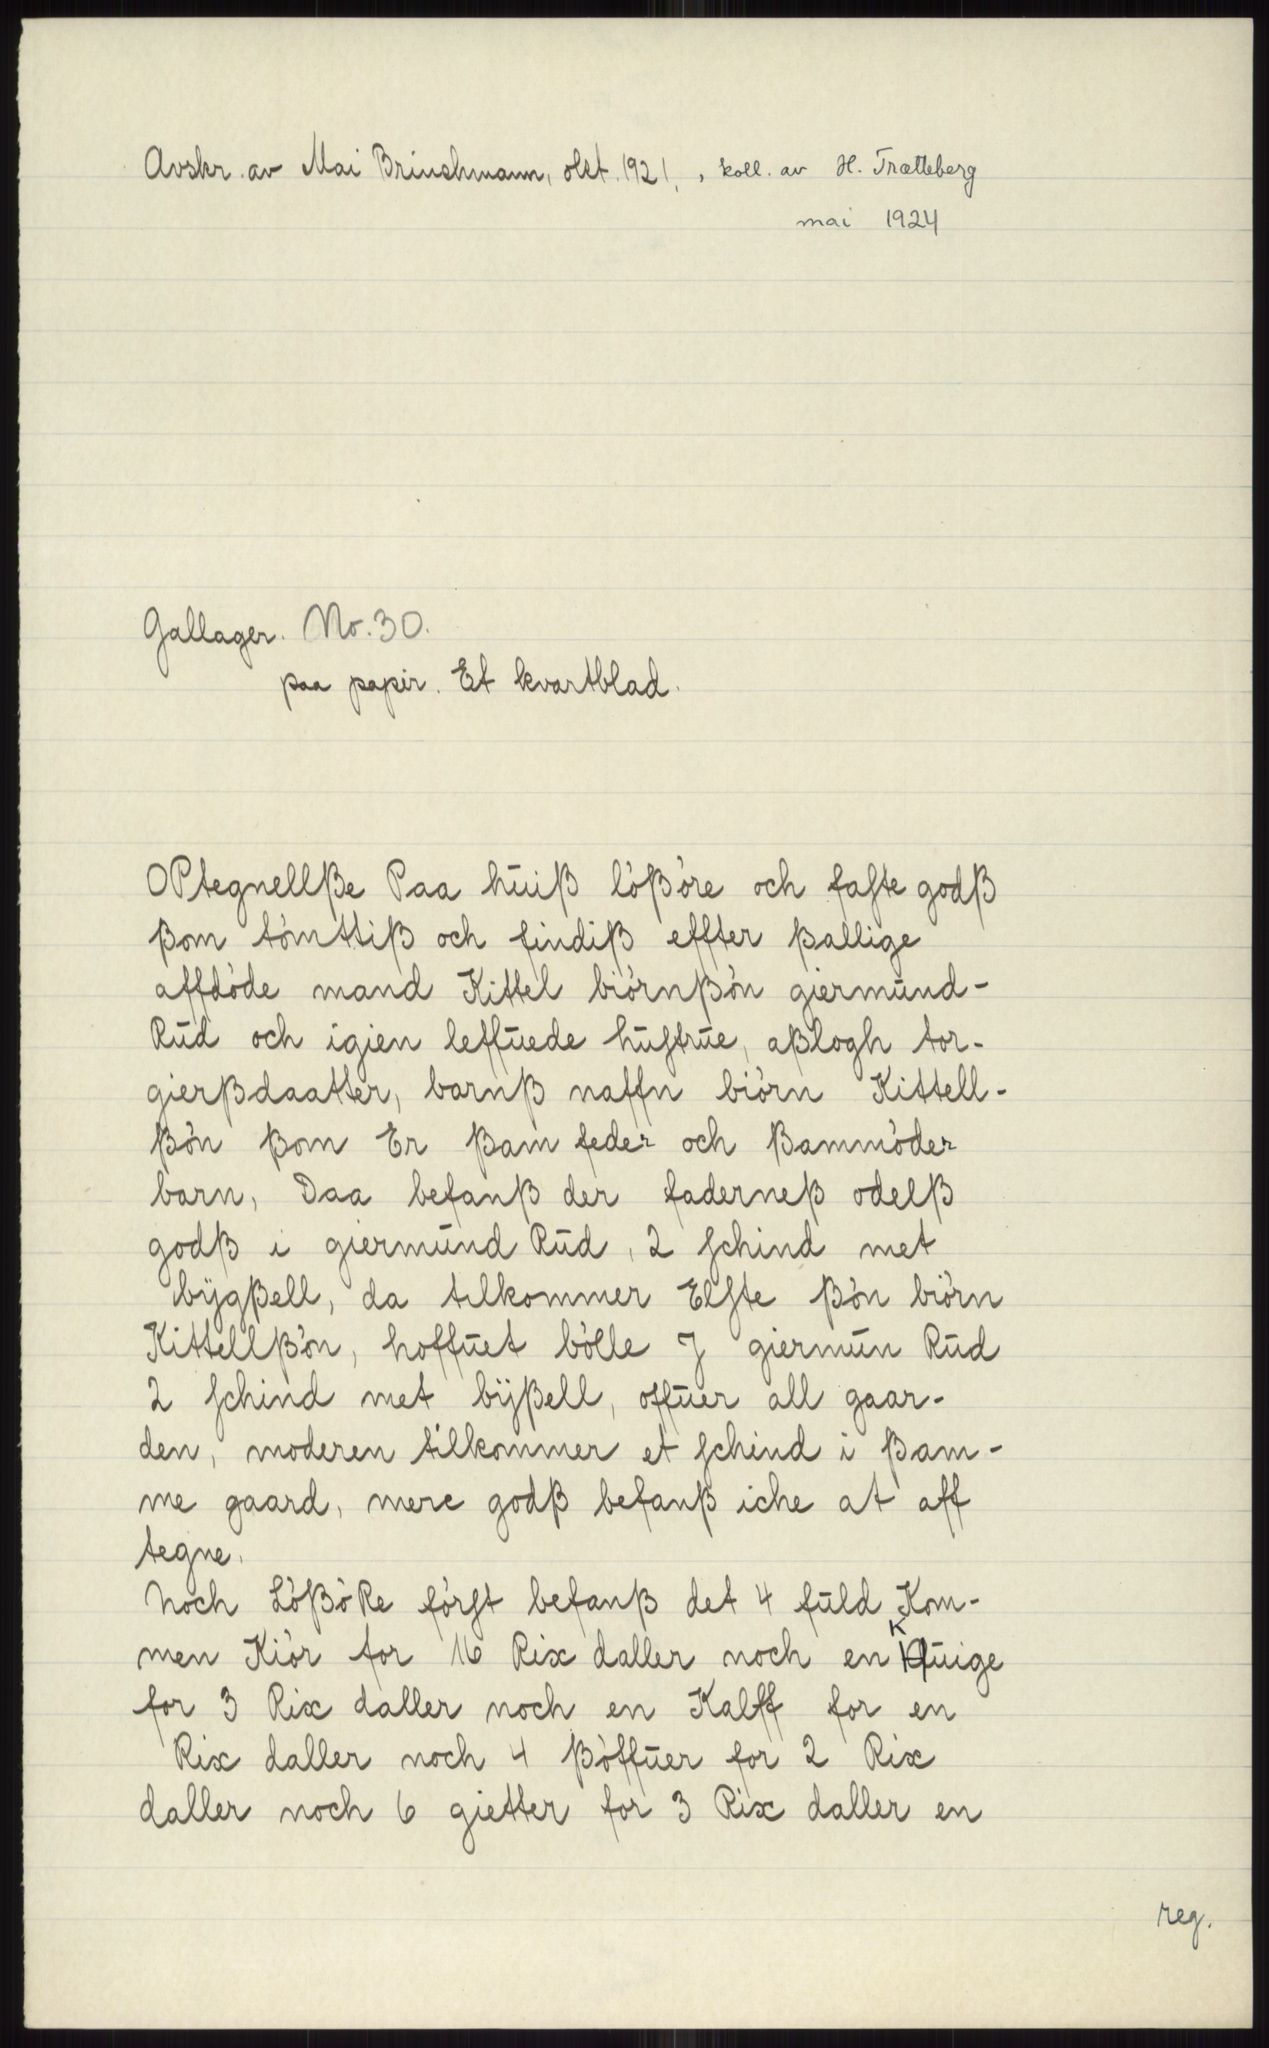 Avskr. av Mai Brinchmann, okt. 1921, , koll. av H. Trætteberg
mai 1924
Gallager. No. 30.
paa papir. Et kvartblad.
OPtegnellße Paa huiß lößöre och faste godß
ßom tömttiß och findiß effter ßallige
affdöde mand Kittel biörnßön giermund-
Rud och igien leffuede hustrue, aßlogh tor-
gierßdaatter, barnß naffn biörn Kittell-
ßön ßom Er ßam feder och ßammöder
barn, Daa befanß der faderneß odelß
godß i giermund Rud, 2 schind met
bÿgßell, da tilkommer Elste ßön biörn
Kittellßön, hoffuet bölle J giermun Rud
2 schind met bÿßell, offuer all gaar-
den, moderen tilkommer et schind i ßam-
me gaard, mere godß befanß iche at aff
tegne.
Noch LößöRe först befanß det 4 fuld Kom-
men Kiör for 16 Rix daller noch en Kuige
for 3 Rix daller noch en Kalff for en
Rix daller noch 4 ßöffuer for 2 Rix
daller noch 6 gietter for 3 Rix daller en
reg.